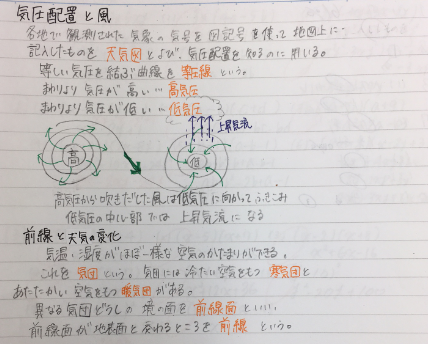 気圧配置と風
各地で観測された気象の気号を図記号を使って地図上に
記入したものを天気図とよび、気圧配置を知るのに用いる。
等しい気圧を結ぶ曲線を等圧線という。
まわりより気圧が高い…高気圧
まわりより気圧が低い…低気圧
上昇気流
高
低
高気圧から吹きだした風は低気圧に向かってふきこみ
低気圧の中心部では上昇気流になる
前線と天気の変化
気温・湿度がほぼ一様な空気のかたまりができる。
これを気団という。気団には冷たい空気をもつ寒気団と
あたたかい空気をもつ暖気団がある。
異なる気団どうしの境の面を前線面といい、
前線面が地表面と交わるところを前線という。